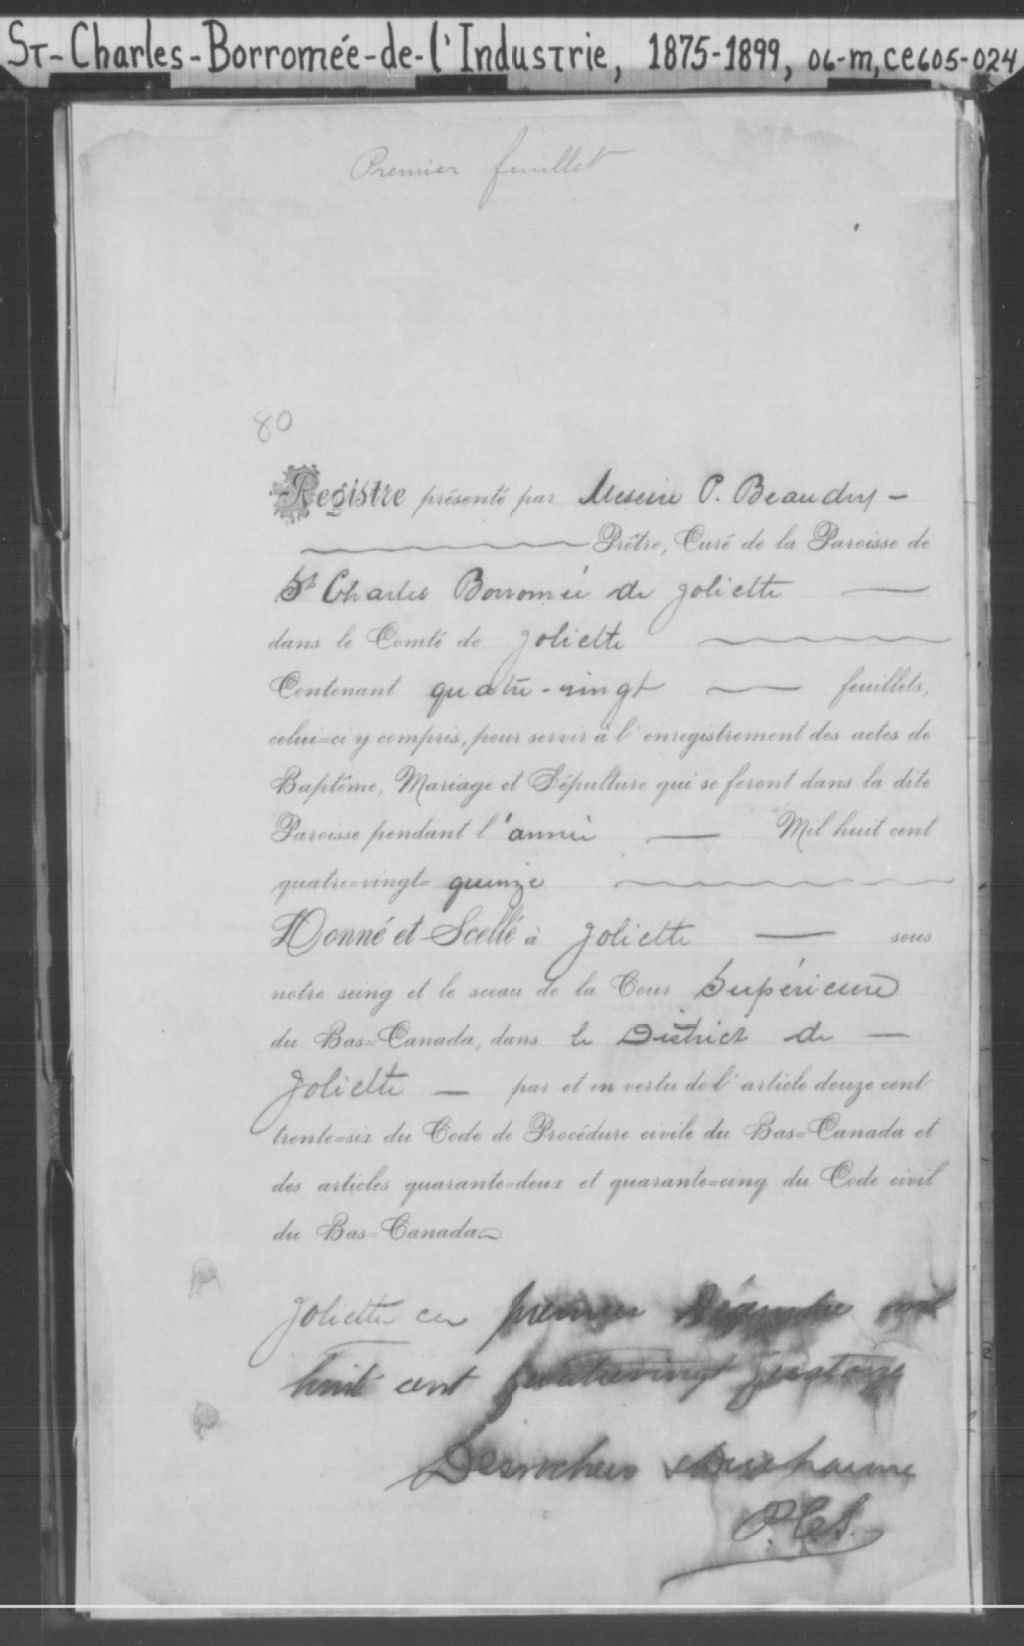 ST-Charles-Borromée-de-l'Industrie, 1875-1899, 06-m, CE605-024
Premier feuillet
80
Registre présenté par Messire P. Beaudry -
Prêtre, Curé de la Paroisse de
St Charles Borromée de Joliette
dans le Comté de Joliette
Contenant quatre-vingt feuillets,
celui=ci y compris, pour servir à l'enregistrement des actes de
Baptême, Mariage et Sépulture qui se feront dans la dite
Paroisse pendant l'année Mil huit cent
quatre=vingt= quinze
Donné et Scellé à Joliette sous
notre seing et le sceau de la Cour Supérieure
du Bas=Canada, dans le District de
Joliette par et en vertu de l'article douze cent
trente=six du Code de Procédure civile du Bas=Canada et
des articles quarante=deux et quarante=cinq du Code civil
du Bas=Canada.
Joliette ce premier Décembre mil
huit cent quatrevingt quatorze
Desrochers & Ducharme
P.C.S.